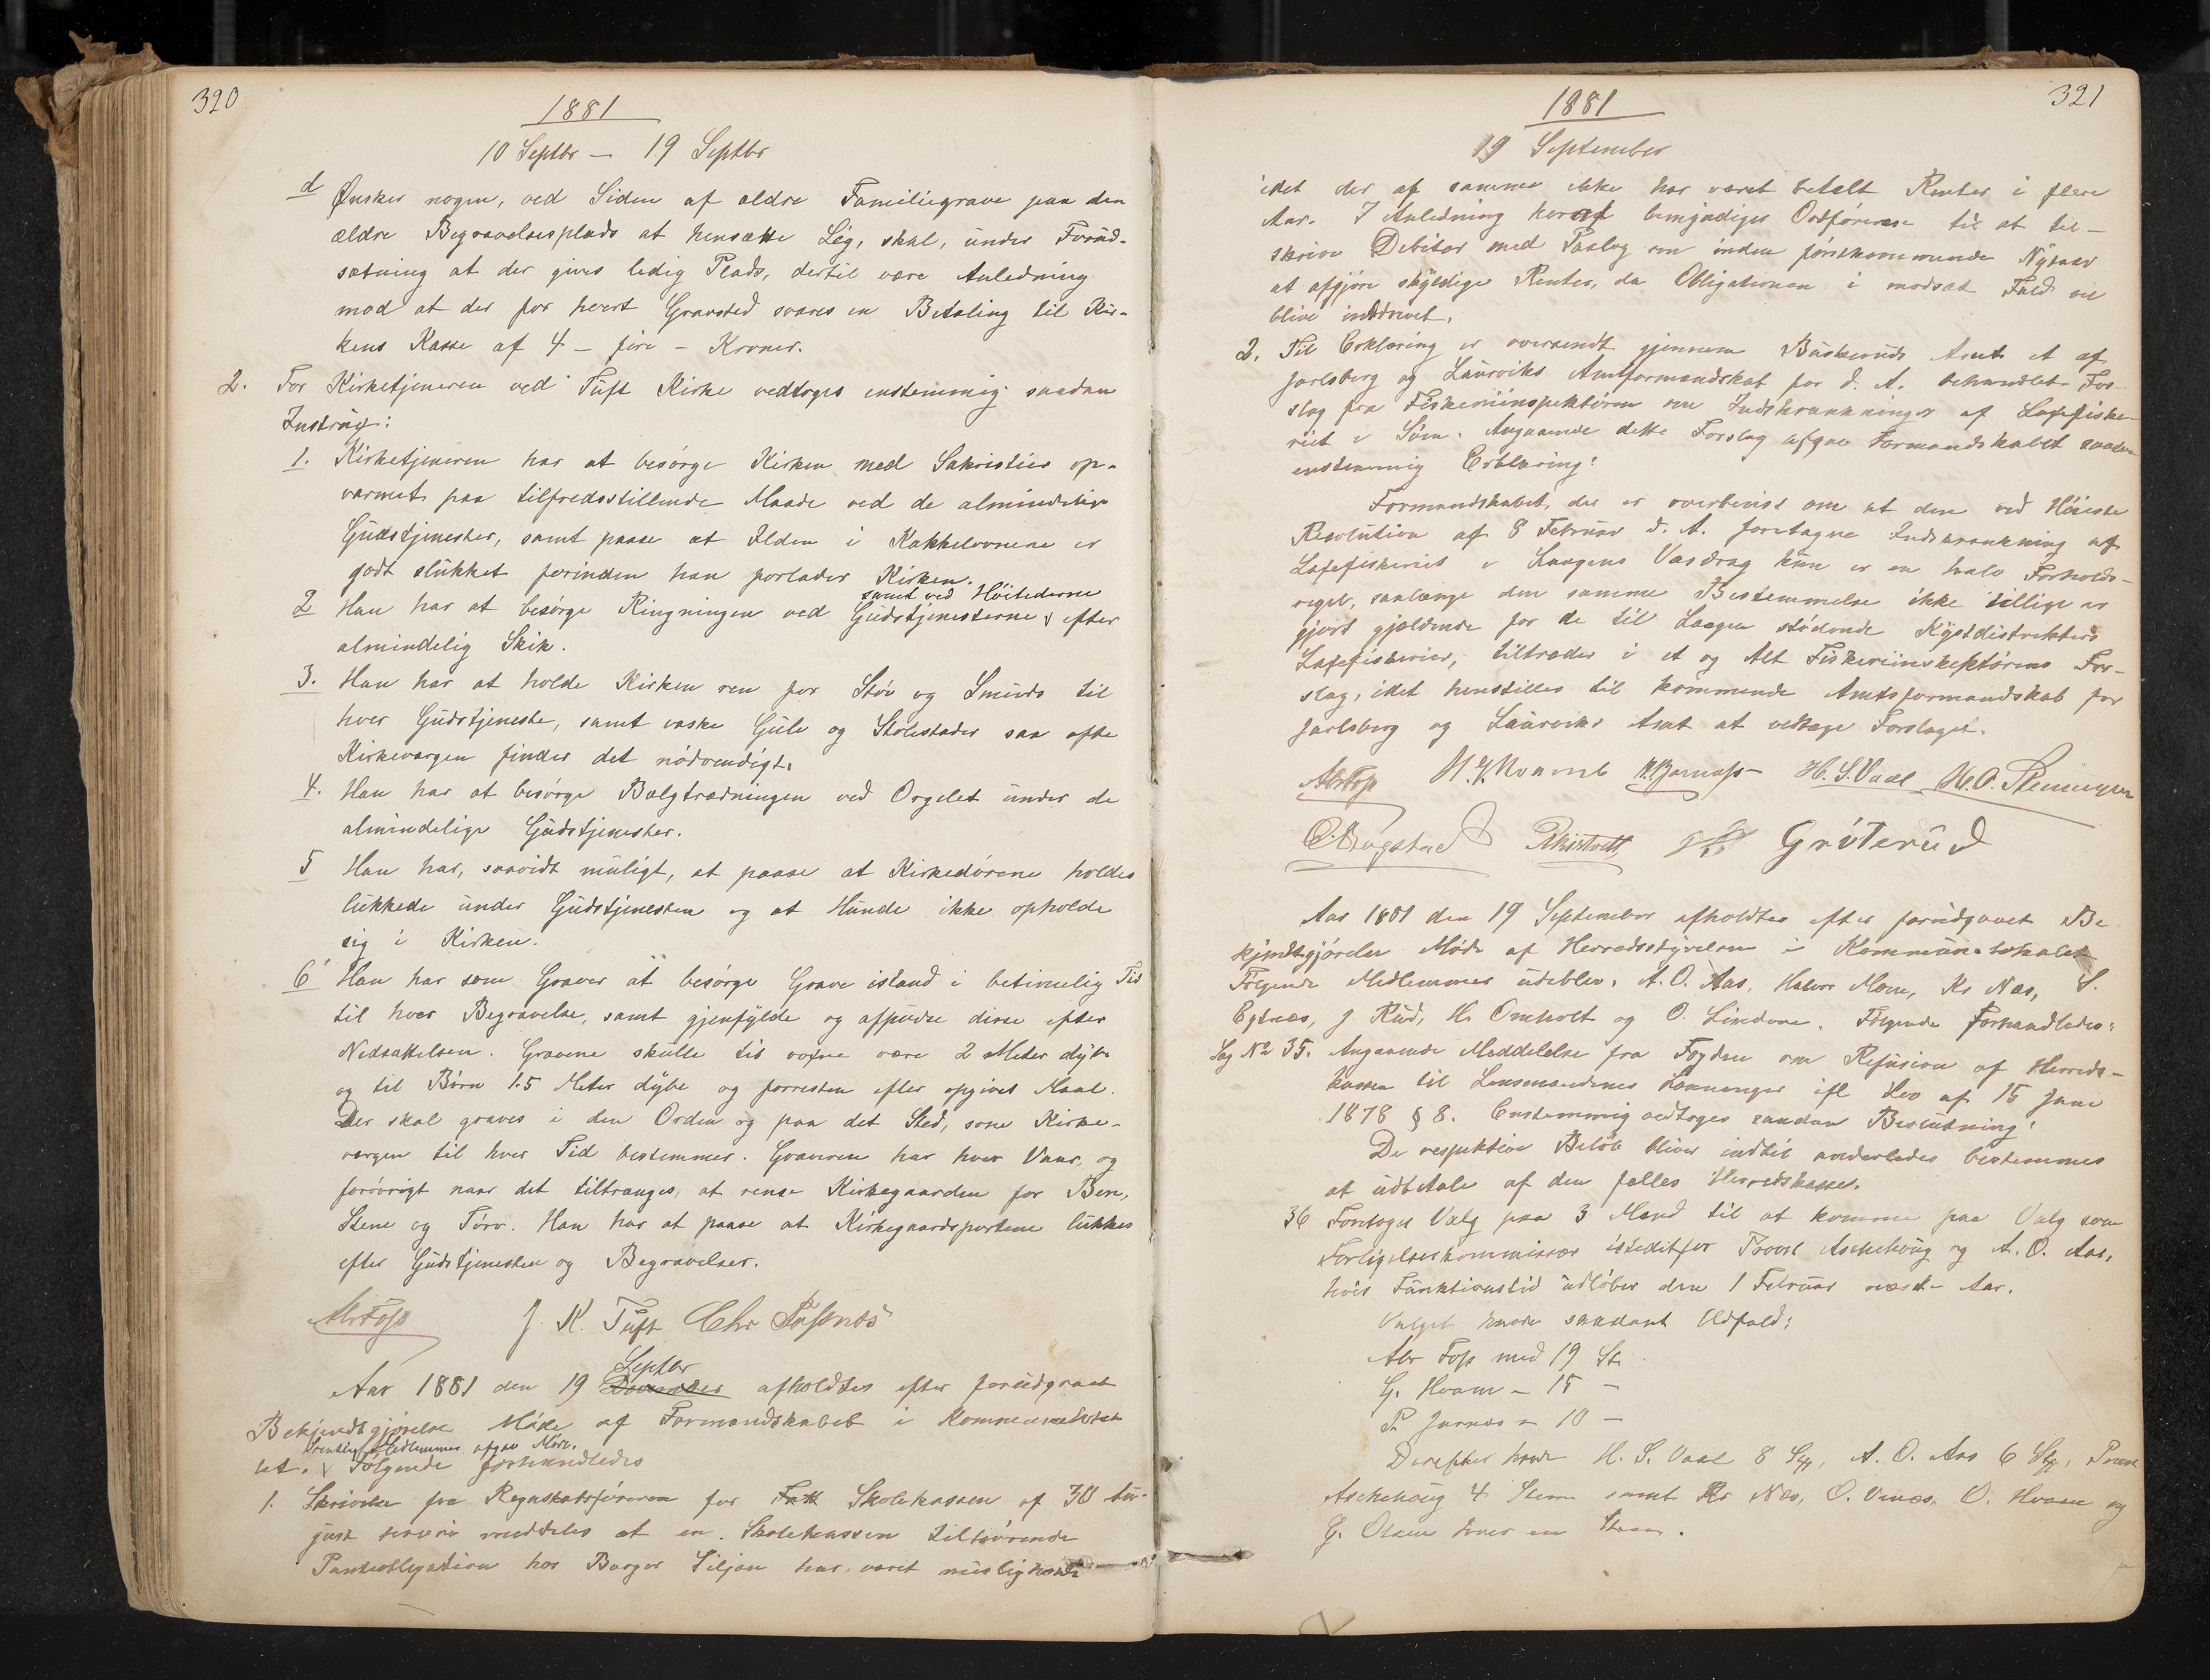 320
1881
10 Septbr — 19 Septbr
d Ønsker nogen, ved Siden af ældre Familiegrave paa den
ældre Begravelsesplads at hensætte Lig, skal, under Forud-
sætning at der gives ledig Plads, dertil være Anledning
mod at der for hvert Gravsted svares en Betaling til Kir-
kens Kasse af 4 — fire — Kroner.
2. For Kirketjeneren ved Tuft Kirke vedtoges enstemmig saadan
Instrux:
1. Kirketjeneren har at besørge Kirken med Sakristier op-
varmet paa tilfredsstillende Maade ved de almindelige
Gudstjenester, samt paase at Ilden i Kakkelovnene er
godt slukket forinden han forlader Kirken.
samt ved Høitiderne
2 Han har at besørge Ringningen ved Gudstjenesterne efter
almindelig Skik.
3. Han har at holde Kirken ren for Støv og Smuds til
hver Gudstjeneste, samt vaske Gulv og Stolestader saa ofte
Kirkevergen finder det nødvendigt.
4. Han har at besørge Bælgtrædningen ved Orgelet under de
almindelige Gudstjenester.
5 Han har, saavidt muligt, at paase at Kirkedørene holdes
lukkede under Gudstjenesten og at Hunde ikke opholde
sig i Kirken.
6 Han har som Graver at besørge Grave istand i betimelig Tid
til hver Begravelse, samt gjenfylde og afpudse disse efter
Nedsættelsen. Gravene skulle til voxne være 2 Meter dybe
og til Børn 1.5 Meter dybe og forresten efter opgivet Maal.
Der skal graves i den Orden og paa det Sted, som Kirke-
vergen til hver Tid bestemmer. Graveren har hver Vaar, og
forøvrigt naar det tiltrænges, at rense Kirkegaarden for Ben,
Stene og Tørv. Han har at paase at Kirkegaardsportene lukkes
efter Gudstjenesten og Begravelser.
Abr Foss J. K. Tuft Chr
Septbr
Aar 1881 den 19 afholdtes efter forudgaaet
Bekjendtgjørelse Møde af Formandskabet i Kommuneloka-
Medlemmer afgav Møde.
let. Følgende forhandledes
1. Skrivelse fra Regnskabsføreren for Skolekassen af 30 Au-
gust hvori meddeles at en Skolekassen tilhørende
Panteobligation hos Borger Siljan har været misligholdt
321
1881
19 September
idet der af samme ikke har været betalt Renter i flere
Aar. I Anledning heraf bemyndiges Ordføreren til at til-
skrive Debitor med Paalæg om inden førstkommende Nytaar
at afgjøre skyldige Renter, da Obligationen i modsat Fald vil
blive inddrevet.
2. Til Erklæring er oversendt gjennem Buskeruds Amt et af
Jarlsberg og Laurviks Amtformandskab for d. A. behandlet For-
slag fra Fiskeriinspektøren om Indskrænkninger af Laxefiske-
riet i Søen. Angaaende dette Forslag afgav Formandskabet saadan
enstemmig Erklæring:
Formandskabet, der er overbevist om at den ved Høieste
Resolution af 8 Februar d. A. foretagne Indskrænkning af
Laxefiskeriet i Laagens Vasdrag kun er en halv Forholds-
regel, saalænge den samme Bestemmelse ikke tillige er
gjort gjældende for de til Laagen stødende Kystdistrikters
Laxefiskerier, tiltræder i et og Alt Fiskeriinspektørens For-
slag, idet henstilles til kommende Amtsformandskab for
Jarlsberg og Laurviks Amt at vedtage Forslaget.
Abr Foss H. S. Vaal
Gröterud
Aar 1881 den 19 September afholdtes efter forudgaaet Be
kjendtgjørelse Møde af Herredsstyrelsen i Kommunelokalet
Følgende Medlemmer udeblev: A. O. Aas, Halvor Moen, Kr Næs, S.
J. Rud, H. Omholt og O. Følgende forhandledes:
Sag No 35. Angaaende Meddelelse fra Fogden om Refusion af Herreds-
kassen til Lensmændenes Lønninger ifl Lov af 15 Juni
1878 § 8. Enstemmig vedtoges saadan Beslutning:
De respektive Beløb bliver indtil anderledes bestemmes
at udbetale af den fælles Herredskasse.
36 Foretoges Valg paa 3 Mænd til at komme paa Valg som
Forligelseskommissær istedetfor Provst Aschehoug og A. O. Aas,
hvis Funktionstid udløber den 1 Februar næste Aar.
Valget havde saadant Udfald:
Abr Foss med 19 St.
G. Hvam — 15 —
P. Jarnæs — 10 —
Derefter havde H. S. Vaal 8 St, A. O. Aas 6 St, Provst
Aschehoug 4 Stem samt Kr Næs, O. Hvam og
G. Olsen hver en Stem.